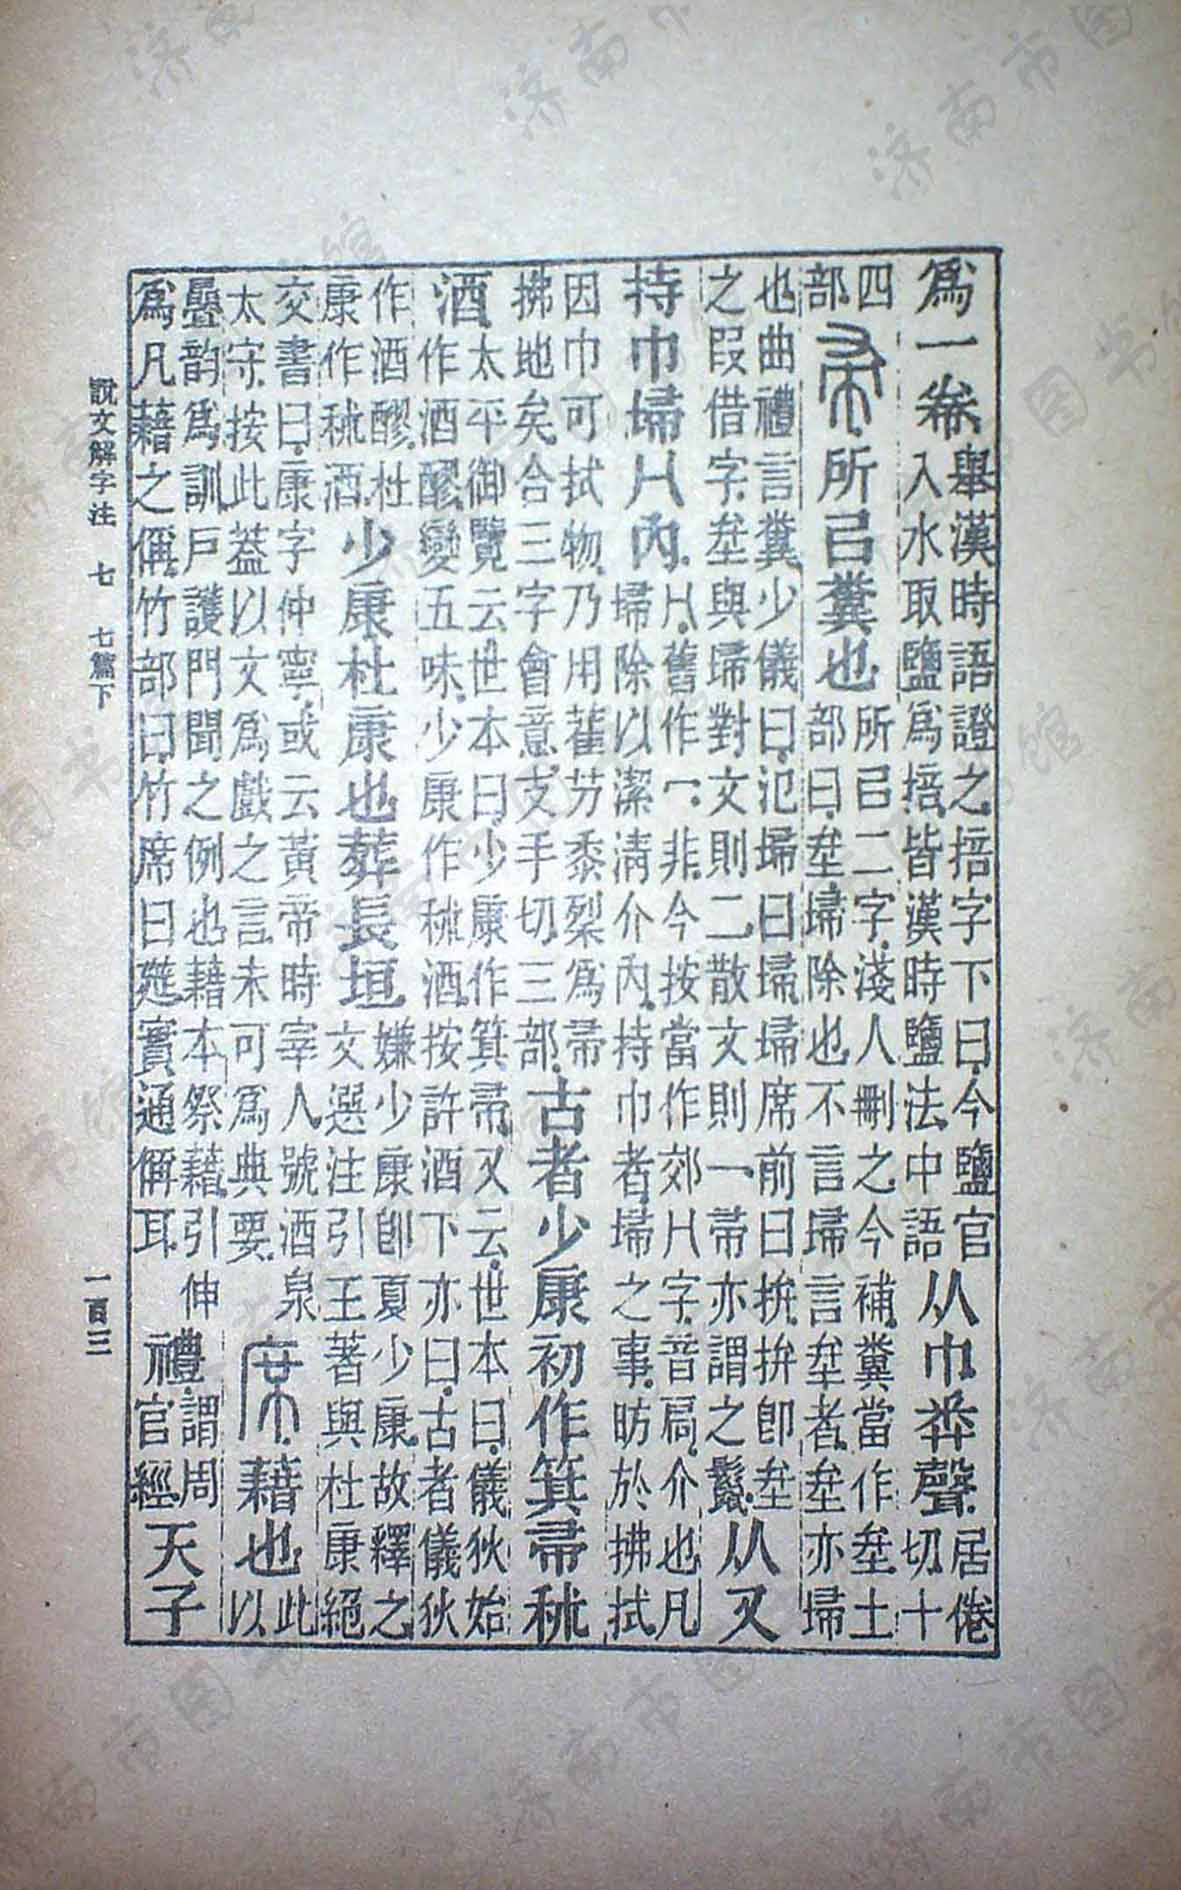 爲一卷舉漢時語證之掊字下曰今鹽官入水取鹽爲掊皆漢時鹽法中語从巾𢍏聲居倦切十
四部帚所㠯糞也所㠯二字淺人刪之今補糞當作坌土部曰坌埽除也不言埽言坌者坌亦埽
也曲禮言糞少儀曰氾埽曰埽埽席前曰拚拚卽坌之叚借字坌與埽對文則二散文則一帚亦謂之鬣从又
持巾埽冂內冂舊作冖非今按當作郊冂字音扃介也凡埽除以潔淸介內持巾者埽之事昉於拂拭
因巾可拭物乃用萑芀黍梨爲帚拂地矣合三字會意支手切三部古者少康初作箕帚秫
酒太平御覽云世本曰少康作箕帚又云世本曰儀狄始作酒醪變五味少康作秫酒按許酒下亦曰古者儀狄
作酒醪杜康作秫酒少康杜康也葬長垣嫌少康卽夏少康故釋之文選注引王著與杜康絕
交書曰康字仲寧或云黃帝時宰人號酒泉太守按此蓋以文爲戲之言未可爲典要席藉也此以
疊韵爲訓戶護門聞之例也藉本祭藉引伸爲凡藉之偁竹部曰竹席曰筵實通偁耳禮謂周官經天子
說文解字注 七 七篇下 一百三
济南市图书馆